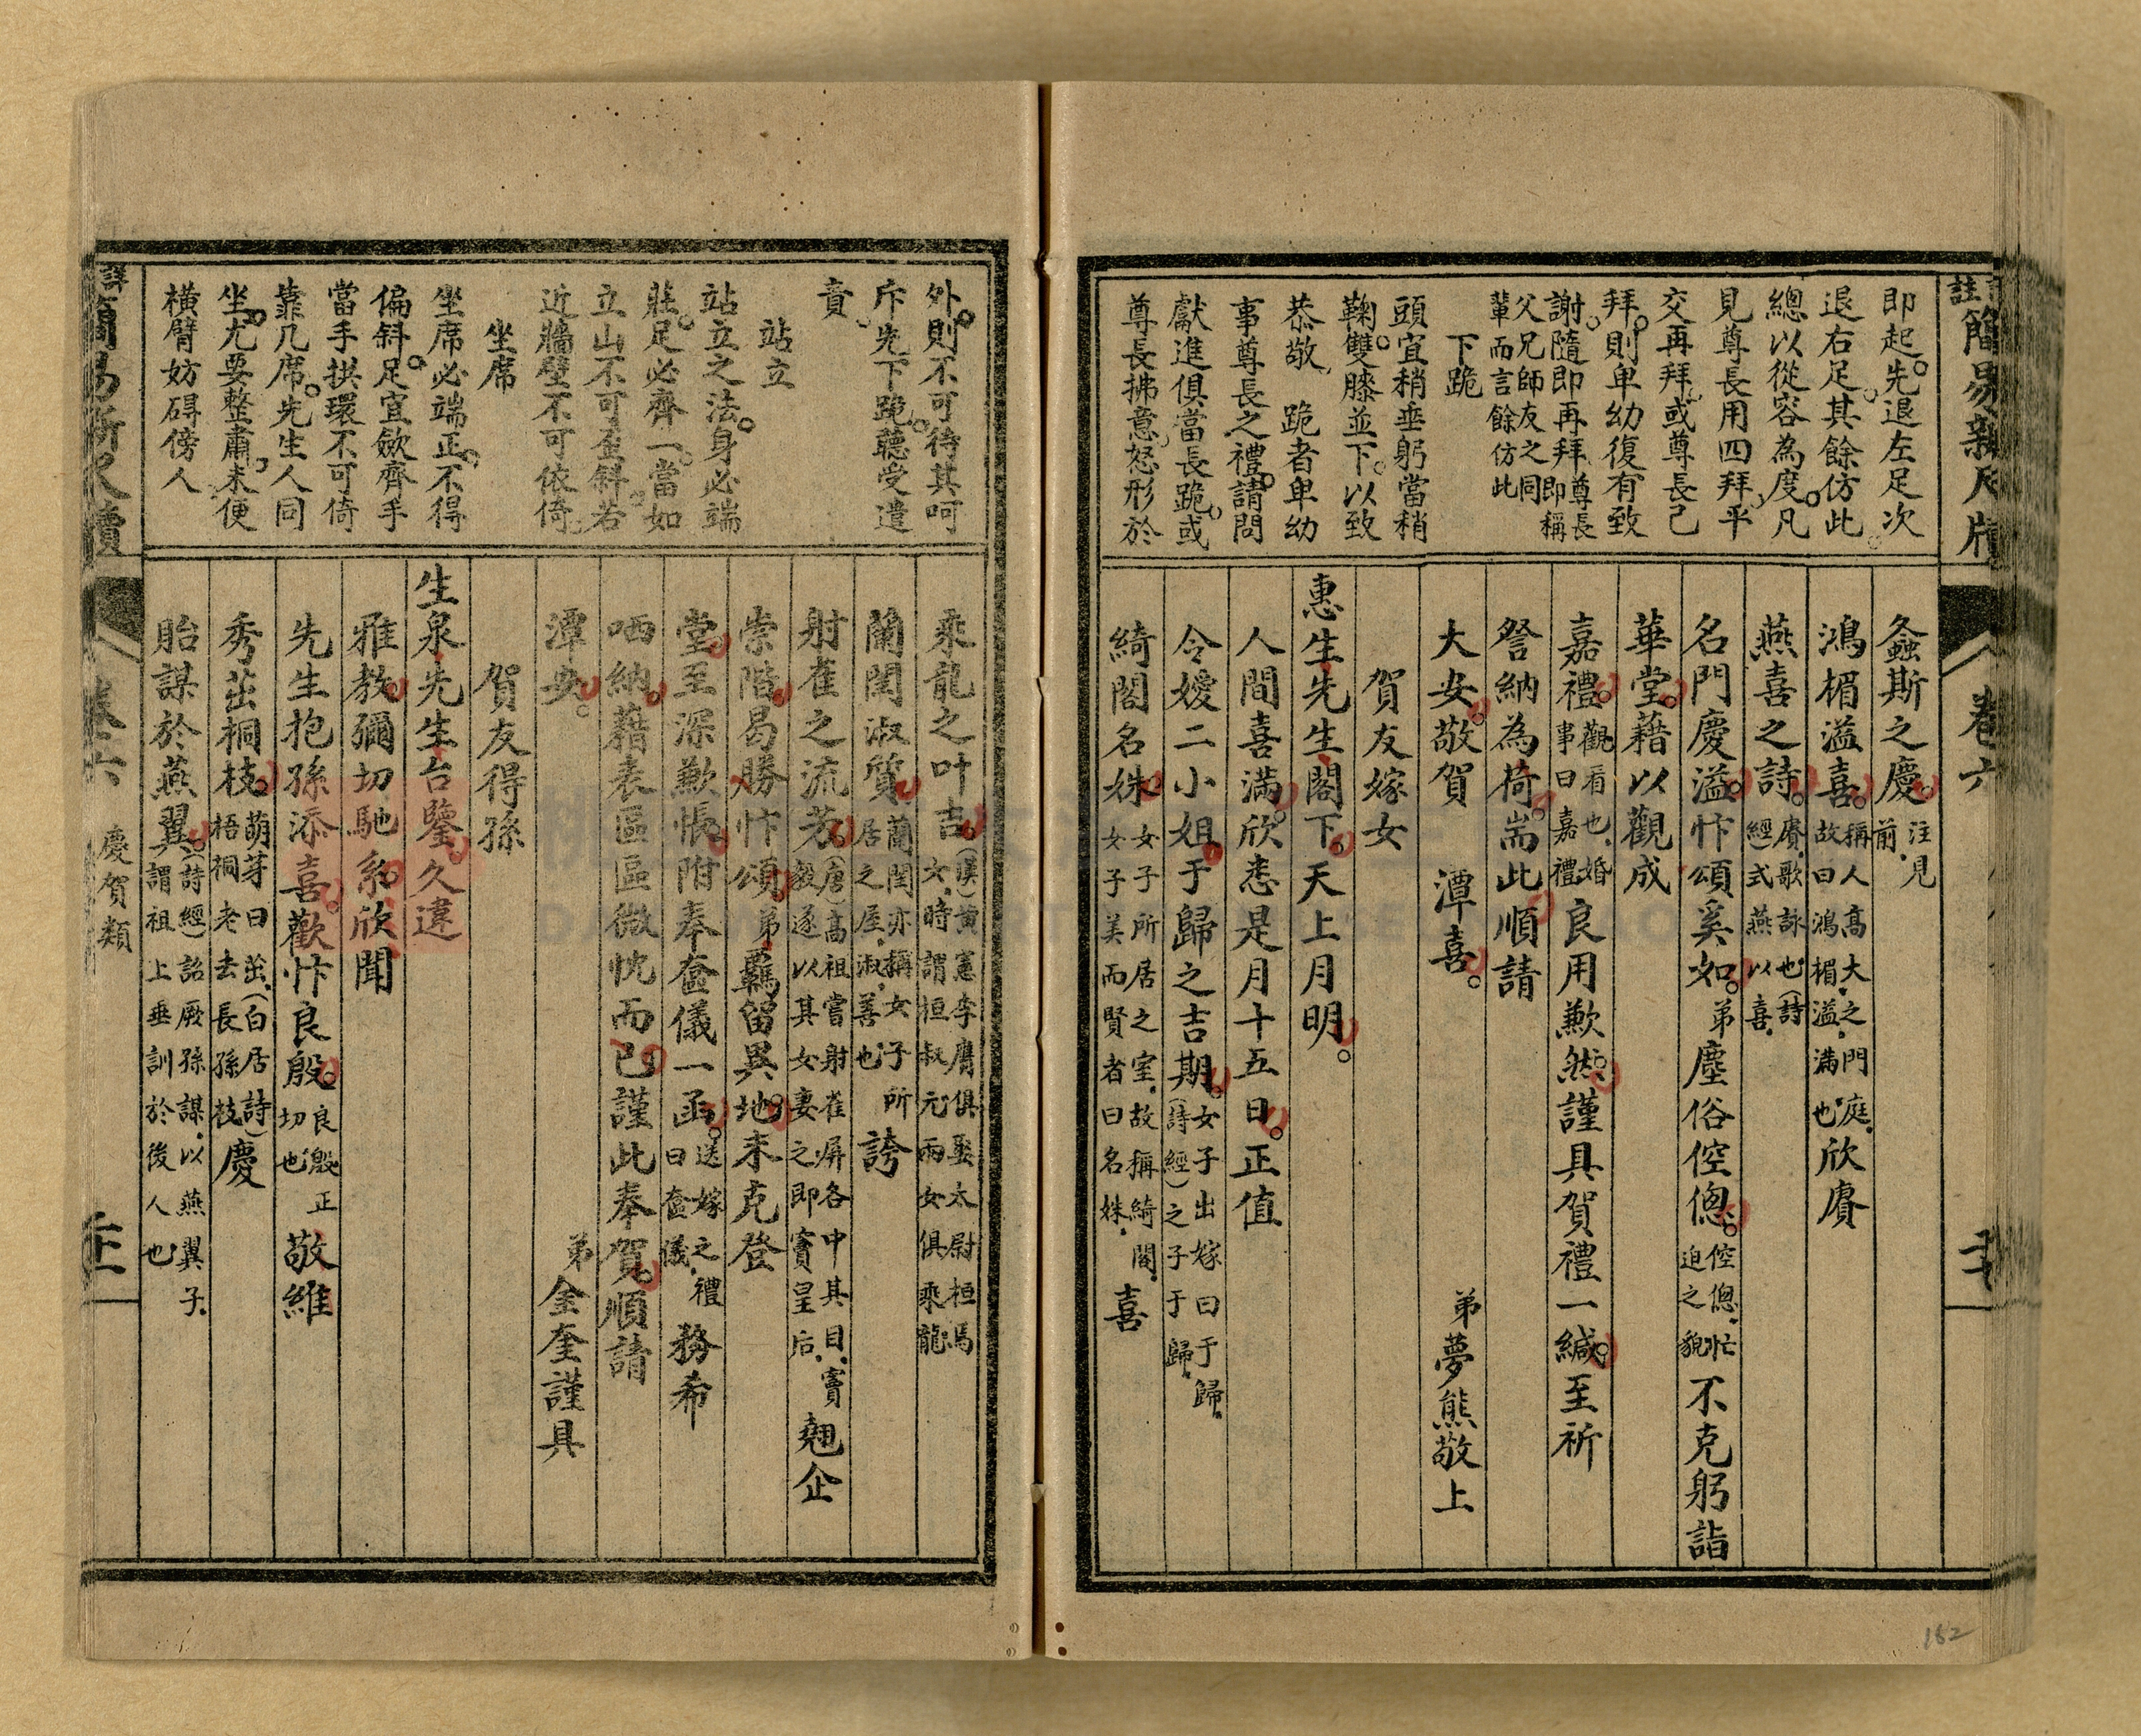 註簡易新尺牘
卷六
即起先退左足次
退右足其餘仿此
總以從容為度凡
見尊長用四拜平
交再拜或尊長已
拜則卑幼復有致
謝隨即再拜尊長即稱
父兄師友之同輩而言餘仿此
下跪
頭宜稍垂躬當稍
鞠雙膝並下以致
恭敬 跪者卑幼
事尊長之禮請問
獻進俱當長跪或
尊長拂意怒形於
螽斯之慶注見前
鴻楣溢喜稱人高大之門庭故曰鴻楣溢滿也欣賡
燕喜之詩賡歌詠也(詩經)式燕以喜
名門慶溢忭頌奚如弟塵俗倥偬倥偬忙迫之貌不克躬詣
華堂藉以觀成
嘉禮觀看也婚事曰嘉禮良用歉然謹具賀禮一緘至祈
詧納為荷耑此順請
大安敬賀 潭喜 弟夢熊敬上
賀友嫁女
惠生先生閣下天上月明
人間喜滿欣悉是月十五日正值
令嬡二小姐于歸之吉期女子出嫁曰于歸(詩經)之子于歸
綺閣名姝女子所居之室故稱綺閣女子美而賢者曰名姝喜
外則不可待其呵
斥先下跪聽受遣
責
站立
站立之法身必端
莊足必齊一當如
立山不可歪斜若
近牆壁不可依倚
坐席
坐席必端正不得
偏斜足宜斂齊手
當手拱環不可倚
靠几席先生人同
坐尤要整肅未便
橫臂妨碍傍人
乘龍之叶吉(漢)黃憲李膺俱娶太尉桓焉女時謂桓叔元兩女俱乘龍
蘭閨淑質蘭閨亦稱女子所居之屋淑善也誇
射雀之流芳(唐)高祖嘗射雀屏各中其目竇毅遂以其女妻之即竇皇后翹企
崇階曷勝忭頌弟羈留異地未克登
堂至深歉悵附奉奩儀一函送嫁之禮曰奩儀務希
哂納藉表區區微忱而已謹此奉賀順請
潭安 弟金奎謹具
賀友得孫
生泉先生台鑒久違
雅教彌切馳系欣聞
先生抱孫添喜歡忭良殷良殷正切也敬維
秀茁桐枝萌芽曰茁(白居詩)梧桐老去長孫枝慶
貽謀於燕翼(詩經)詒厥孫謀以燕翼子謂祖上垂訓於後人也
卷六 慶賀類
162